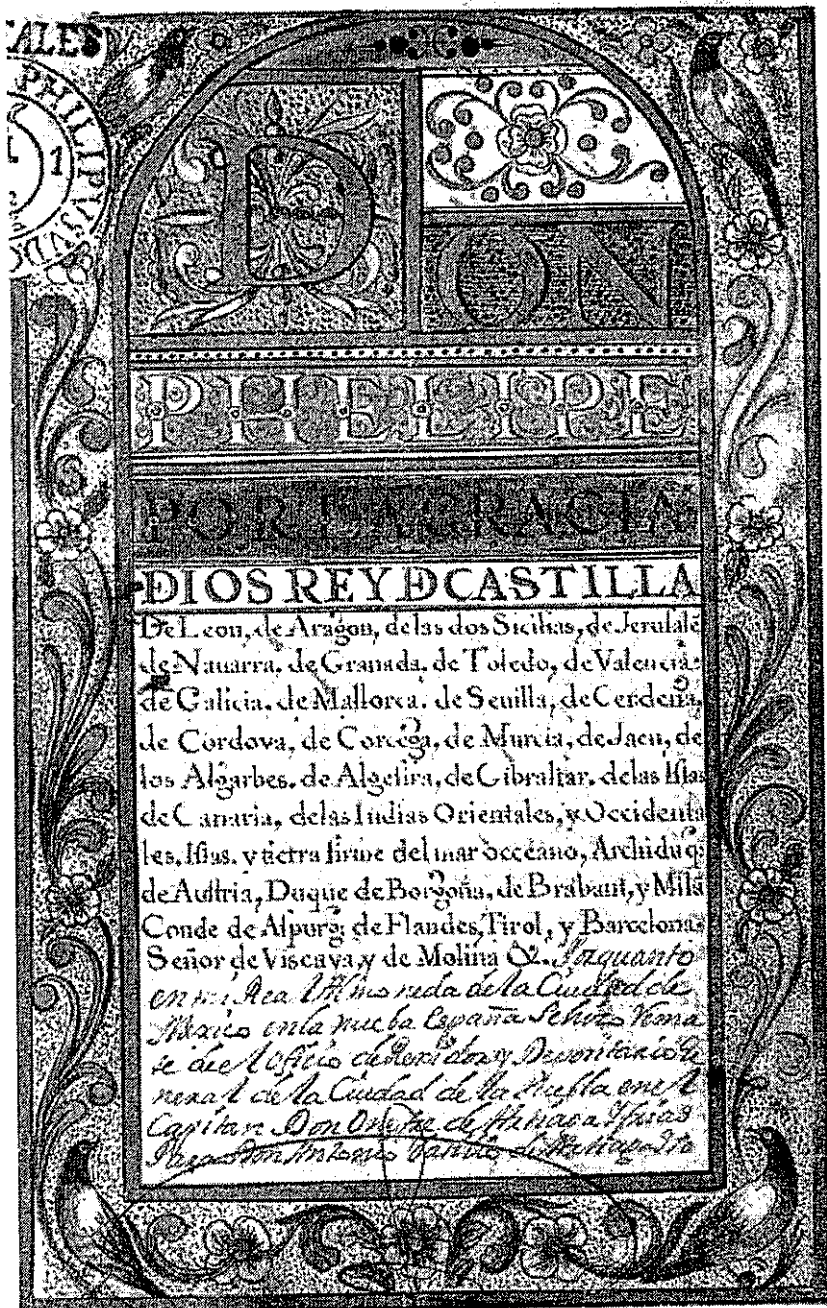 ALES
PHILIPVS V D
1
DON
PHELIPE
POR LA GRACIA
D DIOS REY D CASTILLA
De Leon, de Aragon, de las dos Sicilias, de Jerusalē
de Nauarra. de Granada. de Toledo, de Valencia:
de Galicia. de Mallorca. de Seuilla, de Cerdeña,
de Cordova, de Corcega, de Murcia, de Jaen, de
los Algarbes. de Algesira, de Gibraltar. de las Islas
de Canaria, de las Indias Orientales, y Occidenta
les, Islas. y tierra firme del mar occeano, Archiduq̄
de Austria, Duque de Borgoña, de Brabant, y Milā
Conde de Aspurg: de Flandes, Tirol, y Barcelona:
Señor de Viscaya, y de Molina &. Por quanto
en mi Real Almoneda de la Ciudad de
Mexico en la nueba España Se hizo Rema
te de el Oficio de Rexidor y Depositario Ge
neral de la Ciudad de la Puebla en el
Capitan Don de
Don Antonio de